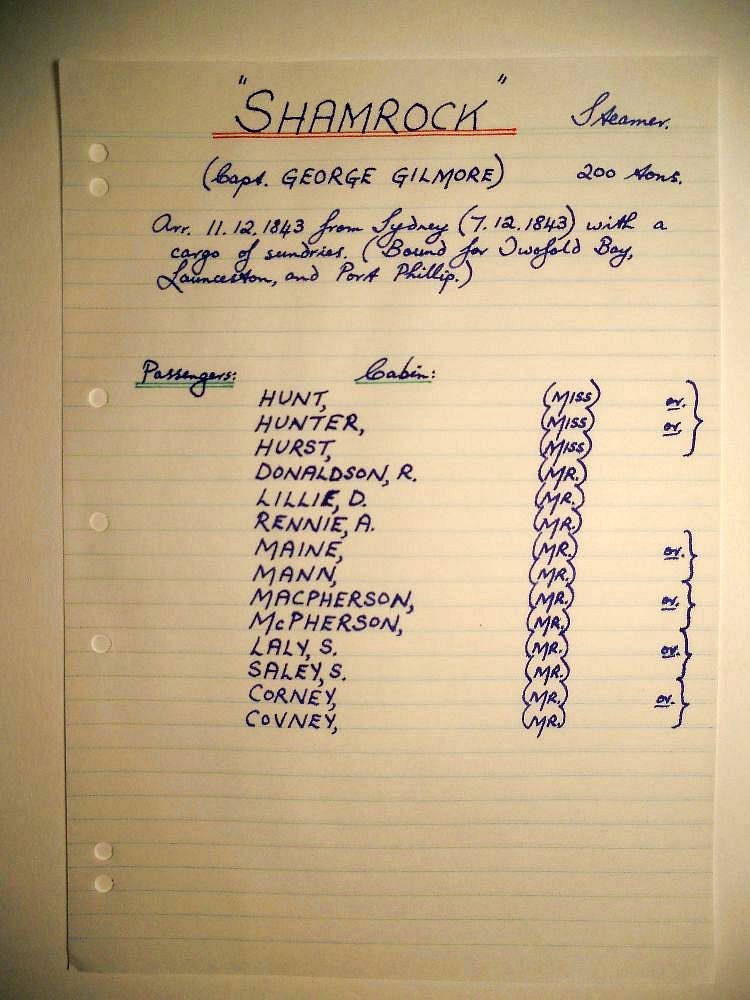 "SHAMROCK" Steamer.
(Capt. GEORGE GILMORE) 200 tons.
Arr. 11.12.1843 from Sydney (7.12.1843) with a
cargo of sundries. (Bound for Twofold Bay,
Launceston, and Port Phillip.)
Passengers: Cabin:
HUNT, (MISS) or.
HUNTER, (MISS) or.
HURST, (MISS)
DONALDSON, R. (MR.)
LILLIE, D. (MR.)
RENNIE, A. (MR.)
MAINE, (MR.) or.
MANN, (MR.)
MACPHERSON, (MR.) or.
McPHERSON, (MR.)
LALY, S. (MR.) or.
SALEY, S. (MR.)
CORNEY, (MR.) or.
COVNEY, (MR.)